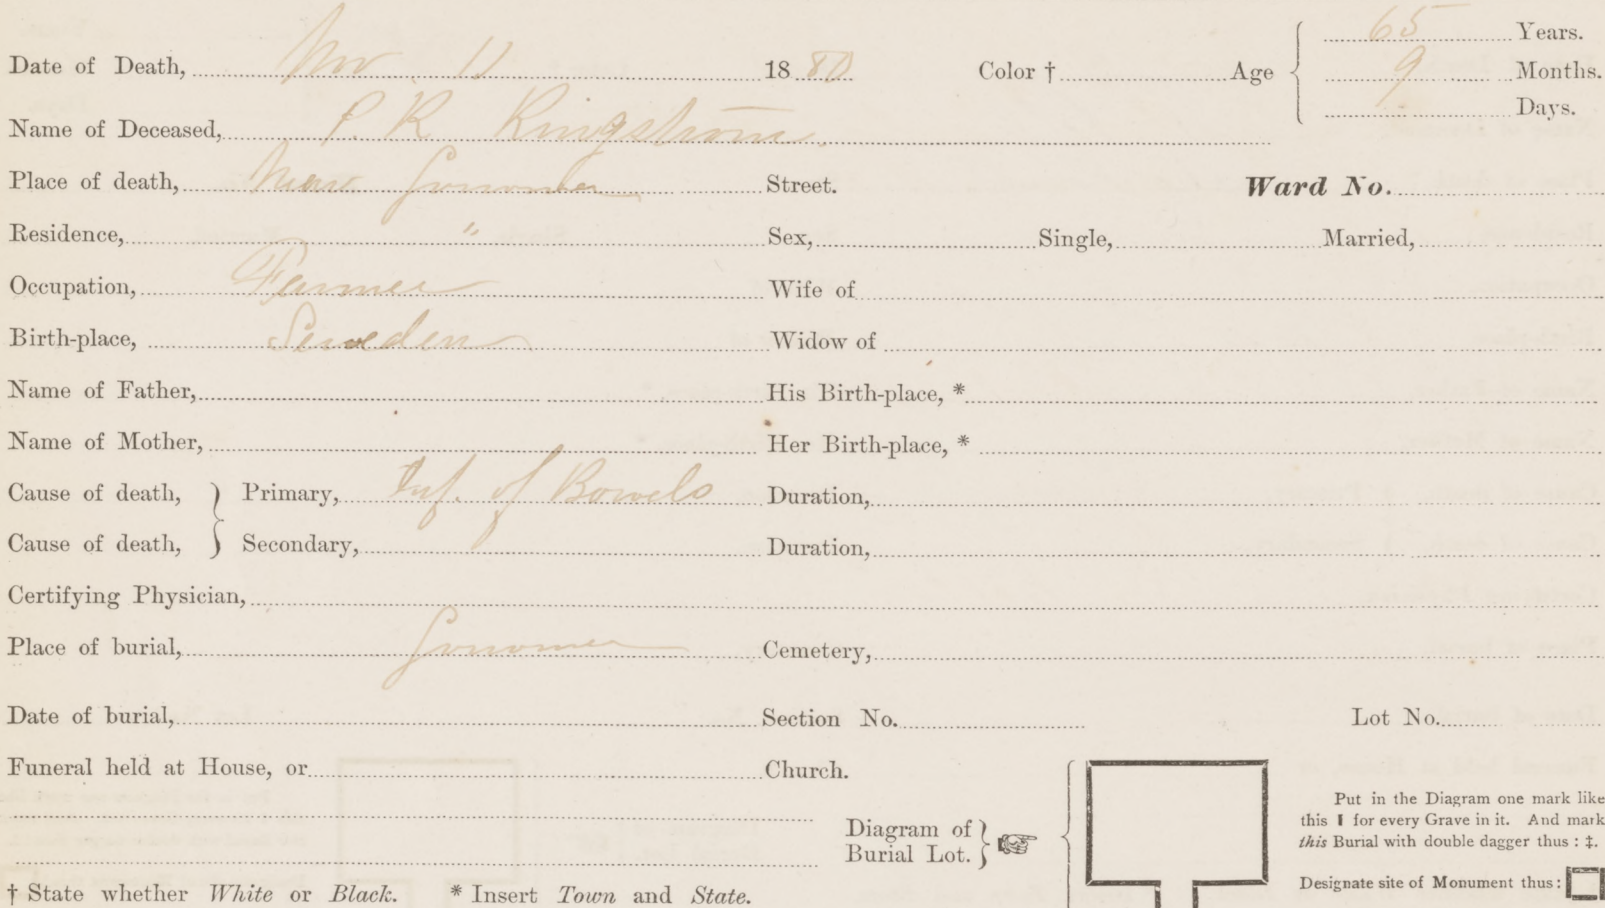 Date of Death, Nov 11 1880 Color † Age 65 Years.
9 Months.
Days.
Name of Deceased, P. R Ringstrom.
Place of death, Near Sonoma Street. Ward No.
Residence, " Sex, Single, Married,
Occupation, Farmer Wife of
Birth-place, Sweden Widow of
Name of Father, His Birth-place, *
Name of Mother, Her Birth-place, *
Cause of death, Primary, Inf. of Bowels Duration,
Cause of death, Secondary, Duration,
Certifying Physician,
Place of burial, Sonoma Cemetery,
Date of burial, Section No. Lot No.
Funeral held at House, or Church.
Diagram of Burial Lot.
Put in the Diagram one mark like
this ❙ for every Grave in it. And mark
this Burial with double dagger thus : ‡.
Designate site of Monument thus :
† State whether White or Black. * Insert Town and State.